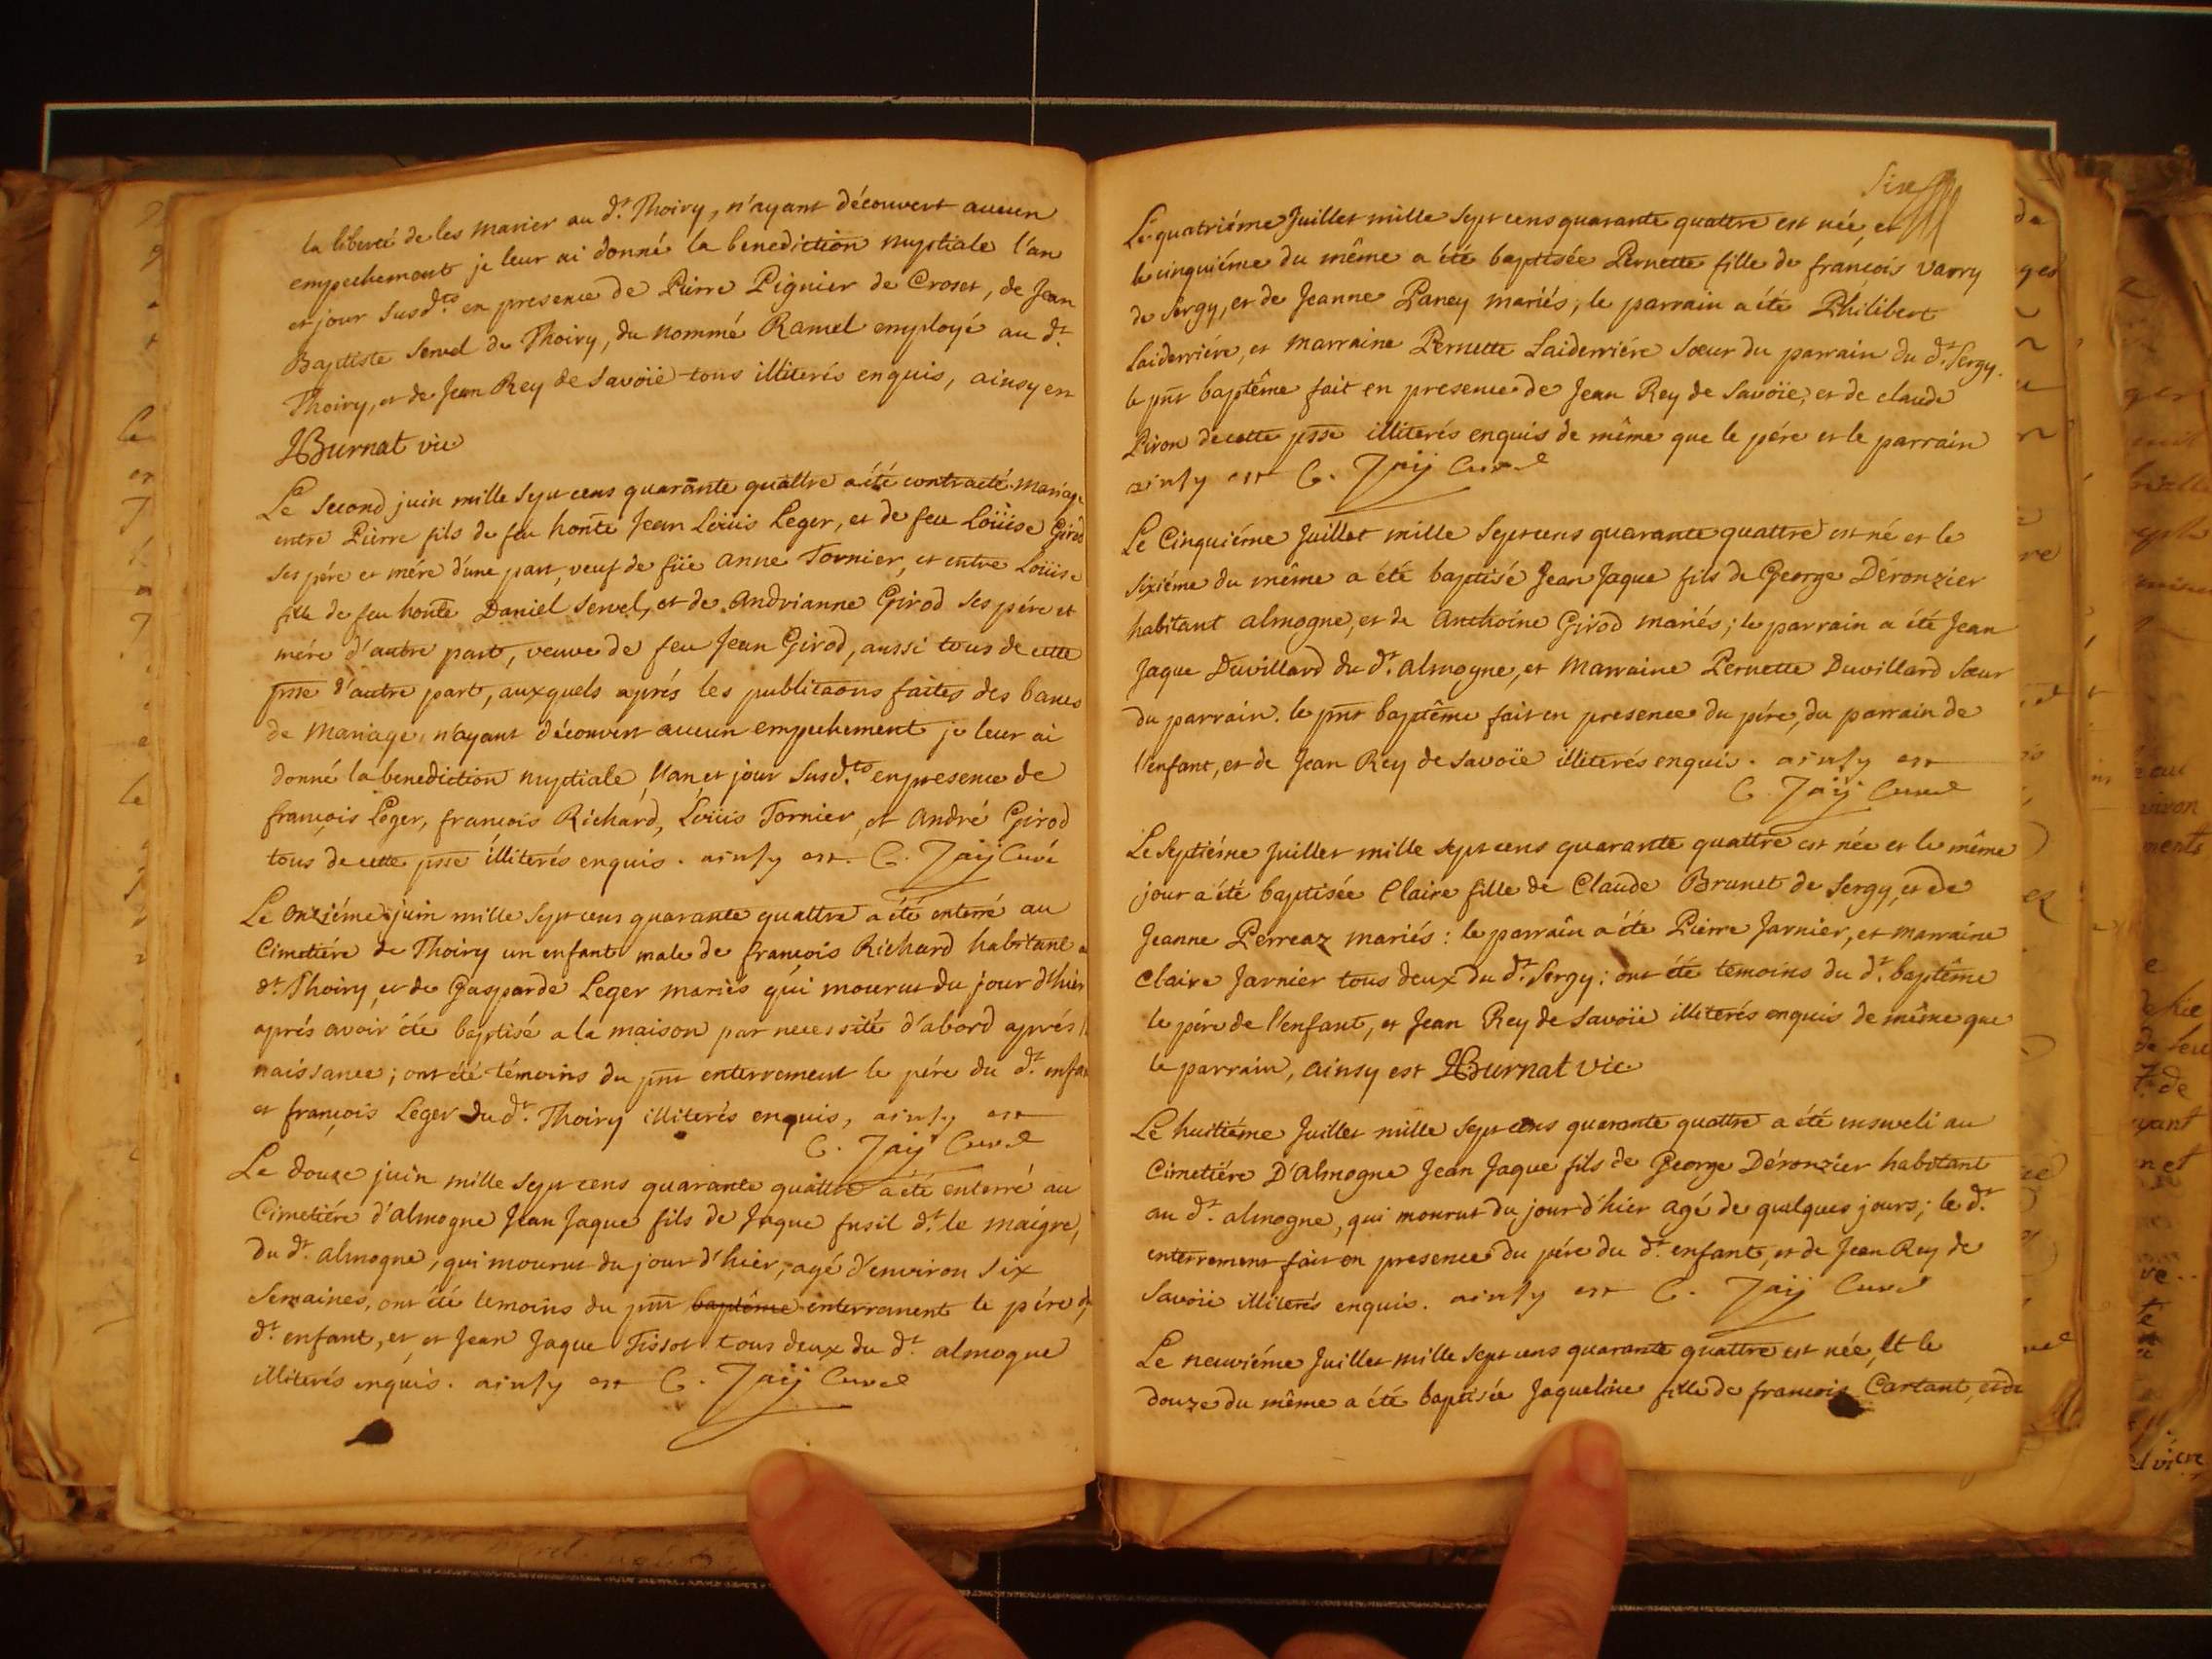 la liberté de les marier au d.t Thoiry, n'ayant découvert aucun
empechement je leur ai donné la benediction nuptiale l'an
et jour susd.ts en presence de Pierre Pignier de Croset, de Jean
Baptiste Servel de Thoiry, du nommé Ramel employé au d.t
Thoiry, et de Jean Rey de Savoïe tous illiterés enquis, ainsy est
JBurnat vic
Le second juin mille sept cens quarante quattre a été contracté mariage
entre Pierre fils de feu honte Jean Loüis Leger, et de feu Loüise Girod
ses pére et mére d'une part, veuf de füe anne Tornier, et entre Loüise
fille de feu honte Daniel Servel, et de Andrianne Girod ses pére et
mére d'autre part, veuve de feu Jean Girod, aussi tous de cette
psse d'autre part, auxquels aprés les publicaons faites des bancs
de mariage, n'ayant découvert aucun empechement je leur ai
donné la benediction nuptiale, l'an et jour susd.ts en presence de
françois Leger, françois Richard, Loüis Tornier, et André Girod
tous de cette psse illiterés enquis. ainsy est. C. Jaij Curé
Le onziéme juin mille sept cens quarante quattre a été enterré au
Cimetiére de Thoiry un enfant male de françois Richard habitant
d.t Thoiry, et de Gasparde Leger mariés qui mourut du jour d'hier
aprés avoir été baptisé a la maison par necessité d'abord aprés
naissance; ont été témoins du pnt enterrement le pére du d.t enfant
et françois Leger du d.t Thoiry illiterés enquis, ainsy est
C. Jaij Curé
Le douze juin mille sept cens quarante quattre a été enterré au
Cimetiére d'almogne Jean Jaque fils de Jaque fusil d.t le maigre,
du d.t almogne, qui mourut du jour d'hier, agé d'environ six
semaines, ont été temoins du pnt baptême enterrement le pére du
d.t enfant, et et Jean Jaque Tissot tous deux du d.t almogne
illiterés enquis. ainsy est C. Jaij Curé
Six
Le quatriéme Juillet mille sept cens quarante quattre est née, et
le cinquiéme du même a été baptisée Pernette fille de françois Varry
de Sergy, et de Jeanne Paney mariés, le parrain a été Philibert
Laiderriére, et marraine Pernette Laiderriére sœur du parrain du d.t Sergy.
le pnt baptême fait en presence de Jean Rey de Savoïe, et de claude
Piron de cette psse illiterés enquis de même que le pére et le parrain
ainsy est C. Jaij Curé
Le Cinquiéme Juillet mille sept cens quarante quattre est né et le
sixiéme du même a été baptisé Jean Jaque fils de George Déronzier
habitant almogne, et de Anthoine Girod mariés; le parrain a été Jean
Jaque Duvillard du d.t almogne, et marraine Pernette Duvillard sœur
du parrain. le pnt baptême fait en presence du pére, du parrain de
l'enfant, et de Jean Rey de Savoïe illiterés enquis. ainsy est
C. Jaij Curé
Le septiéme Juillet mille sept cens quarante quattre est née et le même
jour a été baptisée Claire fille de Claude Brunet de Sergy, et de
Jeanne Perreaz mariés: le parrain a été Pierre Jarnier, et marraine
Claire Jarnier tous deux du d.t Sergy: ont été temoins du d.t baptême
le pére de l'enfant, et Jean Rey de Savoïe illiterés enquis de même que
le parrain, ainsy est JBurnat vic
Le huitiéme Juillet mille sept cens quarante quattre a été enseveli au
Cimetiére D'almogne Jean Jaque fils de George Déronzier habitant
au d.t almogne, qui mourut du jour d'hier agé de quelques jours; le d.t
enterrement fait en presence du pére du d.t enfant, et de Jean Rey de
Savoïe illiterés enquis. ainsy est C. Jaij Curé
Le neuviéme Juillet mille sept cens quarante quattre est née, Et le
douze du même a été baptisée Jaqueline fille de françois Cartant, et de